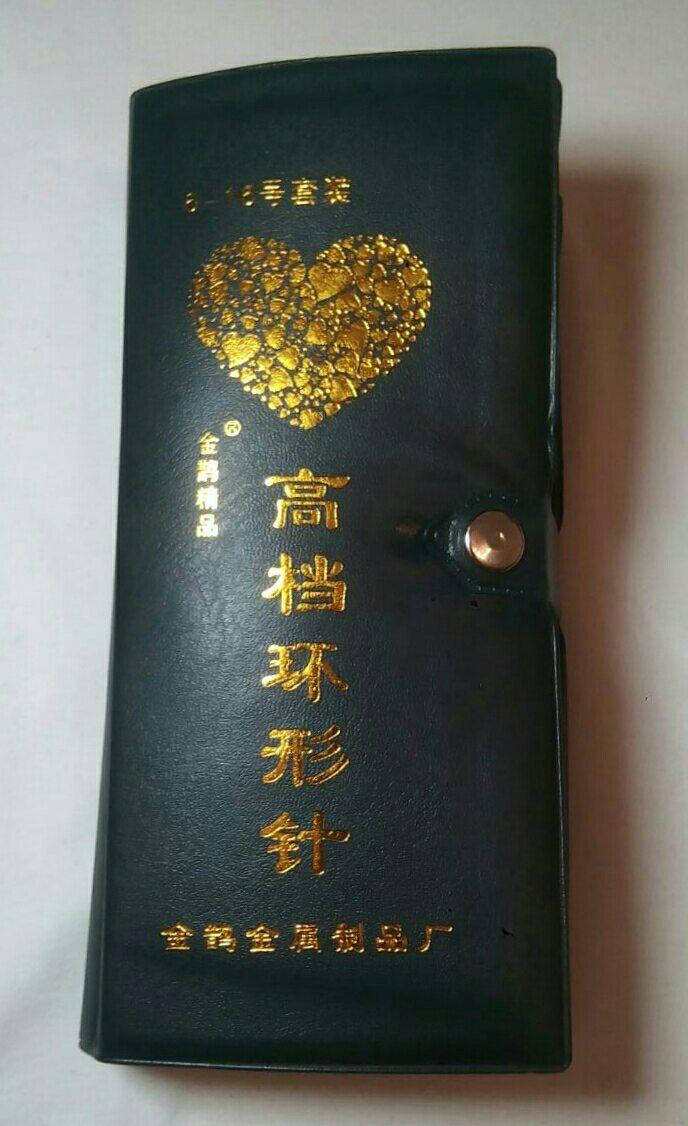 6-16号套装
金鹊精品®
高档环形针
金鹊金属制品厂